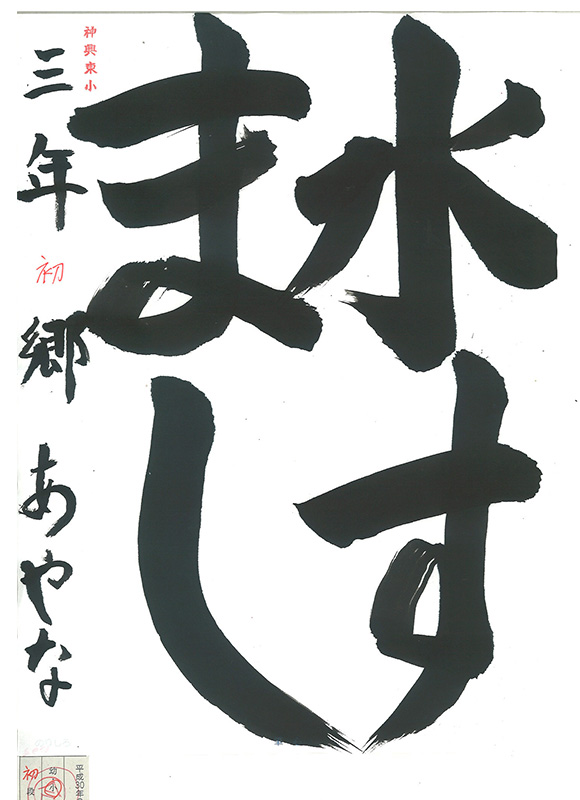 水す
まし
神興東小
三年 初 郷 あやな
平成30年
幼小
初段